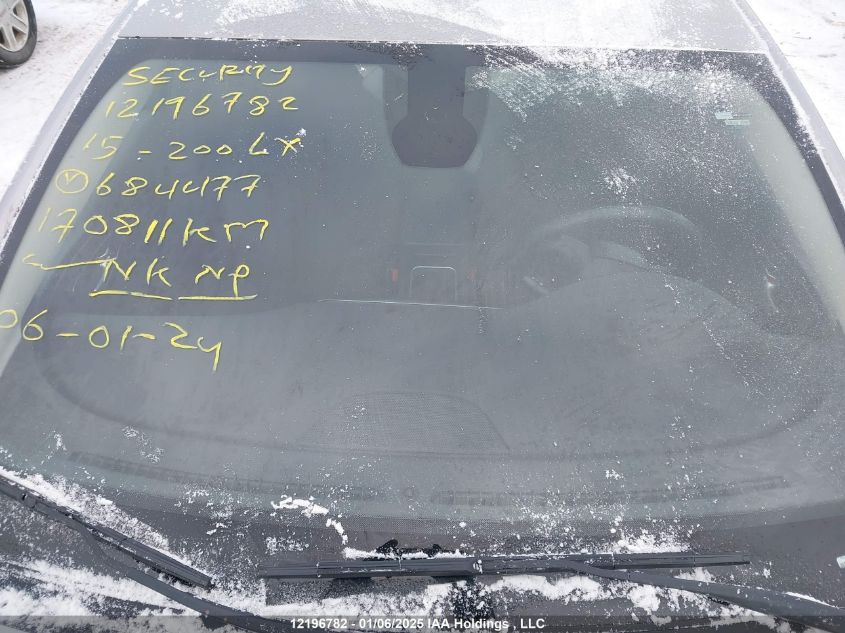 SECURITY
12196782
15-200 LX
Ⓥ684477
170811KM
NK NP
06-01-24
12196782 - 01/06/2025 IAA Holdings , LLC